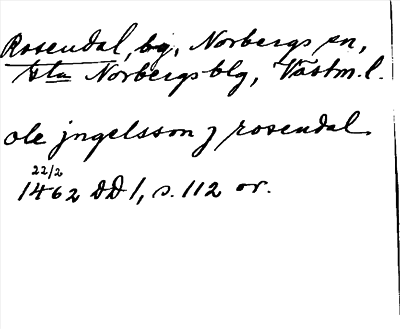 Rosendal, bg, Norbergs sn,
Norbergs blg, Västm. l.
ole jngelsson j rosendal
22/2
1462 DD 1, s. 112 or.